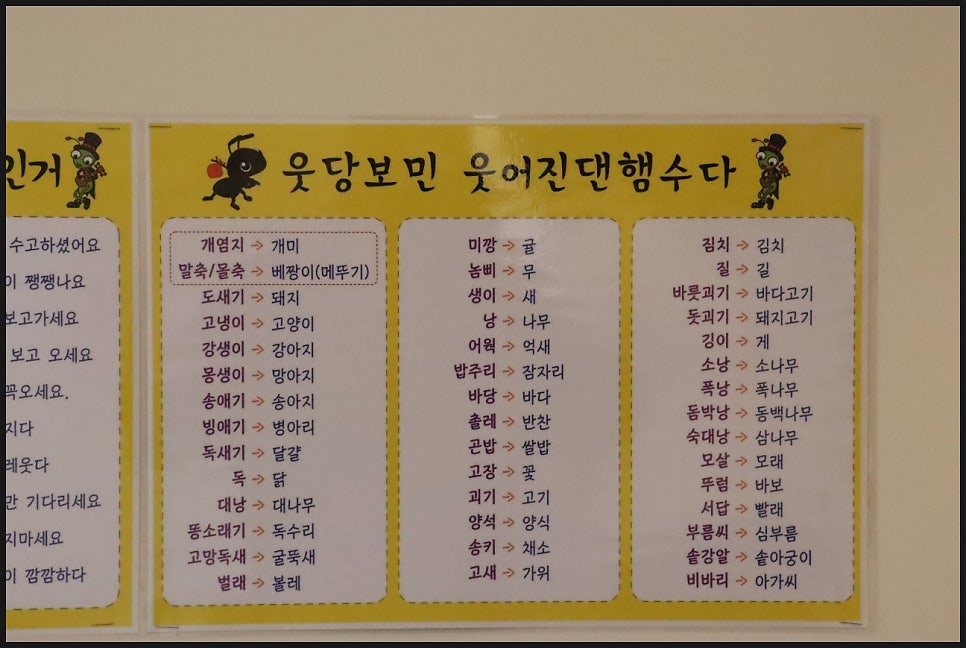 인거
수고하셨어요
이 쨍쨍나요
보고가세요
보고 오세요
꼭오세요.
지다
레웃다
만 기다리세요
지마세요
이 깜깜하다
웃당보민 웃어진댄햄수다
개염지 → 개미
말축/몰축 → 베짱이(메뚜기)
도새기 → 돼지
고냉이 → 고양이
강생이 → 강아지
몽생이 → 망아지
송애기 → 송아지
빙애기 → 병아리
독새기 → 달걀
독 → 닭
대낭 → 대나무
똥소래기 → 독수리
고망독새 → 굴뚝새
벌래 → 볼레
미깡 → 귤
놈삐 → 무
생이 → 새
낭 → 나무
어웍 → 억새
밥주리 → 잠자리
바당 → 바다
촐레 → 반찬
곤밥 → 쌀밥
고장 → 꽃
괴기 → 고기
양석 → 양식
송키 → 채소
고새 → 가위
짐치 → 김치
질 → 길
바릇괴기 → 바다고기
돗괴기 → 돼지고기
깅이 → 게
소낭 → 소나무
폭낭 → 폭나무
돔박낭 → 동백나무
숙대낭 → 삼나무
모살 → 모래
뚜럼 → 바보
서답 → 빨래
부름씨 → 심부름
솥강알 → 솥아궁이
비바리 → 아가씨